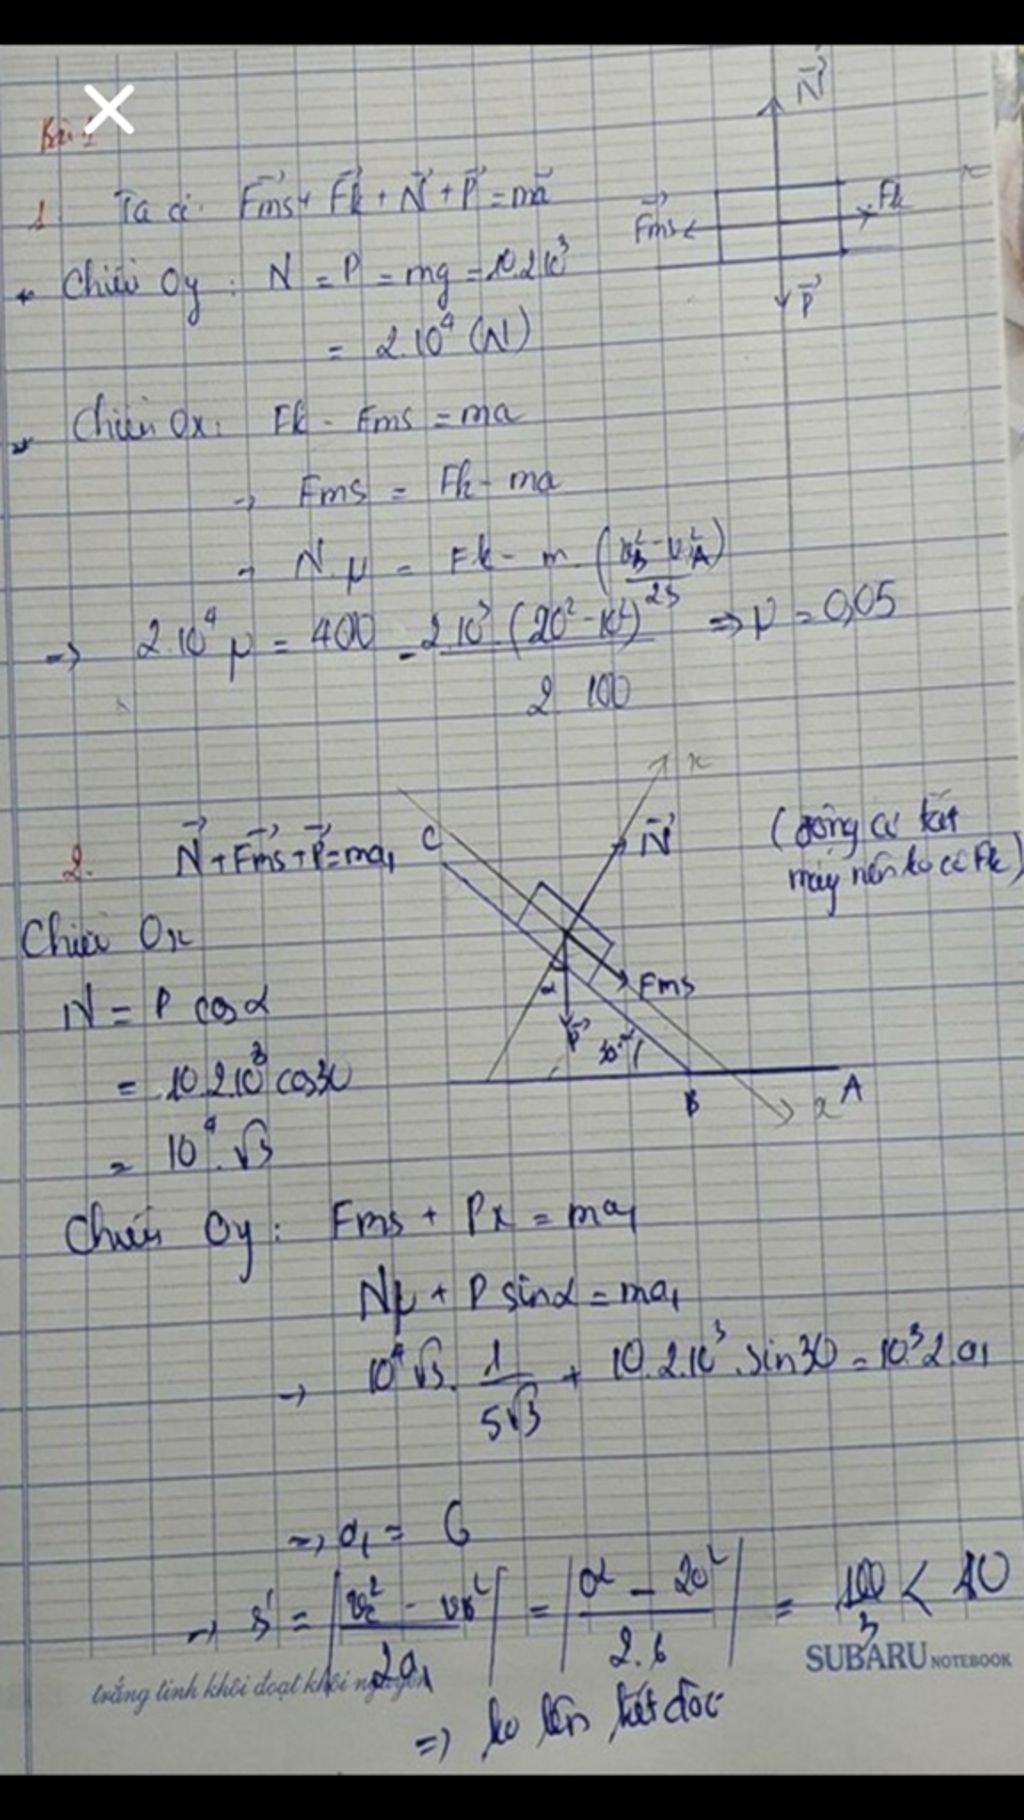 Bài 1
1. Ta có: Fms + Fk + N + P = ma
N
Fk
Fms
P
x
+ Chiếu Oy: N = P = mg = 10.2.10³
= 2.10⁴ (N)
Chiếu Ox: Fk - Fms = ma
→ Fms = Fk - ma
→ N.μ = Fk - m.(v²B - v²A)/2s
→ 2.10⁴ μ = 400 - 2.10³(20² - 10²)/2 100 ⇒ μ = 0,05
2. N + Fms + P = ma₁
(động cơ tắt
máy nên ko có Fk)
C
x
N
α
Fms
P
30°
B
A
x
Chiếu Ox
N = P cosα
= 10.2.10³ cos30
= 10⁴.√3
Chiếu Oy: Fms + Px = ma₁
Nμ + P sinα = ma₁
→ 10⁴√3. 1/5√3 + 10.2.10³.sin30 = 10³.2.a₁
⇒ a₁ = 6
→ s' = |vc² - vB²/2a₁| = |0² - 20²/2.6| = 100/3 < 40
⇒ ko lên hết dốc
trắng tinh khôi đoạt khôi nguyên
SUBARU NOTEBOOK